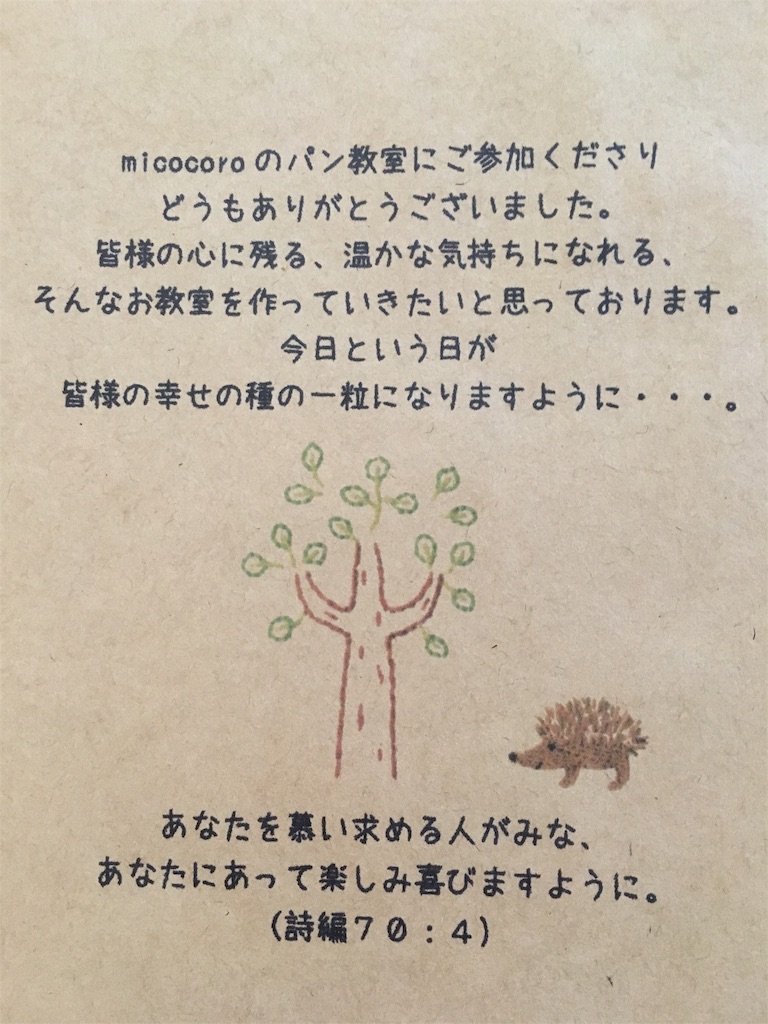 micocoroのパン教室にご参加くださり
どうもありがとうございました。
皆様の心に残る、温かな気持ちになれる、
そんなお教室を作っていきたいと思っております。
今日という日が
皆様の幸せの種の一粒になりますように・・・。
あなたを慕い求める人がみな、
あなたにあって楽しみ喜びますように。
(詩編70:4)